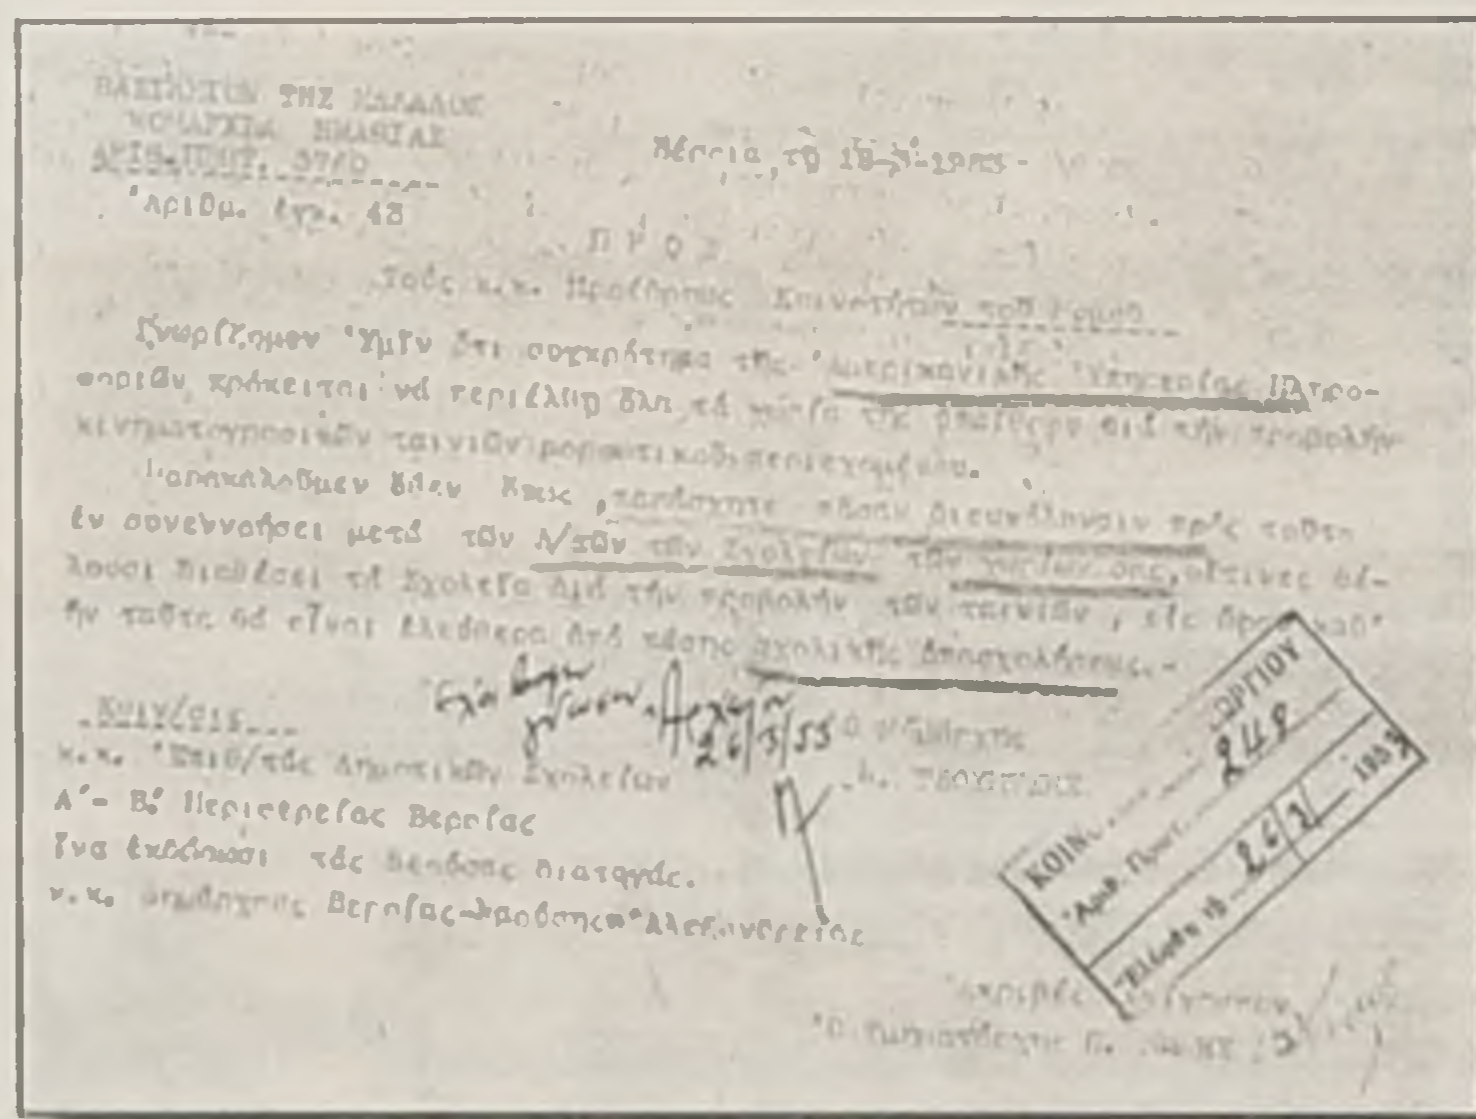 ΒΑΣΙΛΕΙΟΝ ΤΗΣ ΕΛΛΑΔΟΣ
ΝΟΜΑΡΧΙΑ ΗΜΑΘΙΑΣ
ΑΡΙΘ.ΠΡΩΤ.
Βέρροια τῇ
Ἀριθμ. ἐγκ. 43
ΠΡΟΣ
Τούς κ.κ. Προέδρους Κοινοτήτων τοῦ Νομοῦ
Γνωρίζομεν Ὑμῖν ὅτι συγκρότημα τῆς Ἀμερικανικῆς Ὑπηρεσίας Πληρο-
φοριῶν, πρόκειται νά περιέλθῃ ὅλα τά χωρία τῆς ὑπαίθρου διά τήν προβολήν
κινηματογραφικῶν ταινιῶν μορφωτικοῦ περιεχομένου.
Παρακαλοῦμεν ὅθεν ὅπως παράσχητε πᾶσαν διευκόλυνσιν πρός τοῦτο
ἐν συνεννοήσει μετά τῶν Δ/τῶν τῶν Σχολείων τῶν χωρίων σας, οἵτινες θέ-
λουσι διαθέσει τά Σχολεῖα διά τήν προβολήν τῶν ταινιῶν, εἰς ὥρας καθ'
ἥν ταῦτα θά εἶναι ἐλεύθερα ἀπό πάσης σχολικῆς ἀπασχολήσεως.-
26/3/53
Ὁ Νομάρχης
Κοιν/σις
κ.κ. Ἐπιθ/τάς Δημοτικῶν Σχολείων
Α'- Β' Περιφερείας Βεροίας
ἵνα ἐκδώσωσι τάς δεούσας διαταγάς.
κ.κ. Δημάρχους Βεροίας-Ναούσης Ἀλεξανδρείας
ΚΟΙΝ. ΩΡΓΙΟΥ
Ἀριθ. Πρωτ. 248
Ἐλήφθη τῇ 26/3/ 1953
Ἀκριβές Ἀντίγραφον